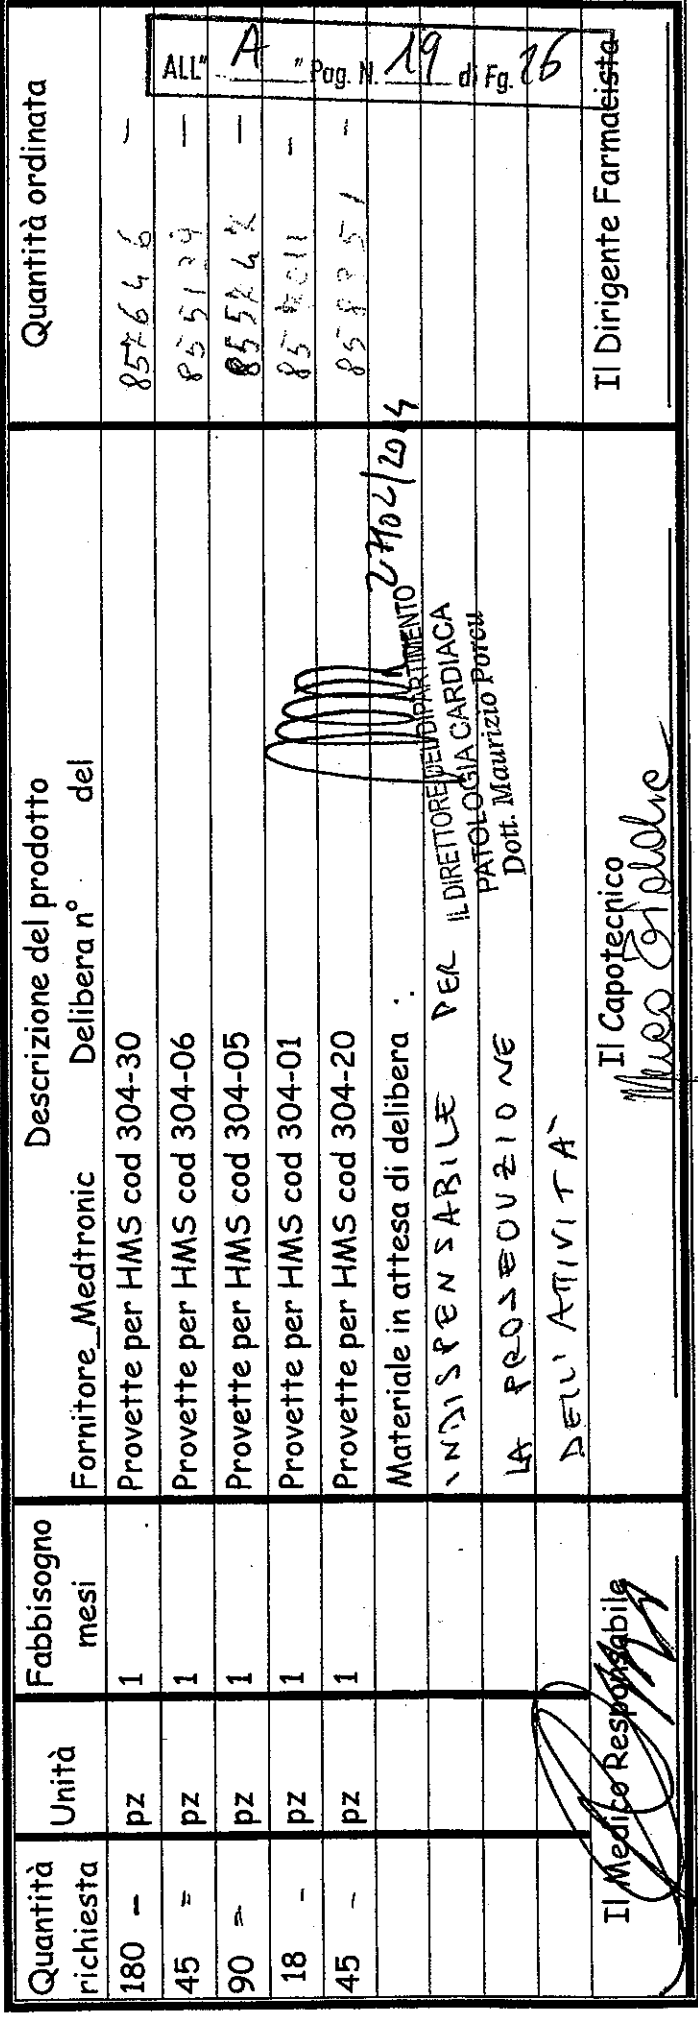 ALL" A " Pag. N. 19 di Fg. 26
Quantità richiesta | Unità | Fabbisogno mesi | Descrizione del prodotto | Quantità ordinata
Fornitore_Medtronic Delibera n° del
180 – | pz | 1 | Provette per HMS cod 304-30 | 857646 –
45 = | pz | 1 | Provette per HMS cod 304-06 | 855129 –
90 = | pz | 1 | Provette per HMS cod 304-05 | –
18 – | pz | 1 | Provette per HMS cod 304-01 | –
45 – | pz | 1 | Provette per HMS cod 304-20 | –
Materiale in attesa di delibera :
27/02/2014
INDISPENSABILE PER
LA PROSECUZIONE
DELL'ATTIVITÀ
IL DIRETTORE DEL DIPARTIMENTO
PATOLOGIA CARDIACA
Dott. Maurizio Porcu
Il Medico Responsabile Il Capotecnico Il Dirigente Farmacista